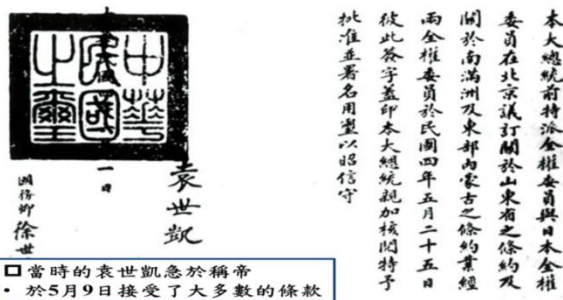 本大總統前特派全權委員與日本全權
委員在北京議訂關於山東省之條約及
關於南滿洲及東部內蒙古之條約業經
兩全權委員於民國四年五月二十五日
彼此簽字蓋印本大總統親加核閱特予
批准並署名用璽以昭信守
中華
民國
之璽
一日
袁世凱
國務卿 徐世
當時的袁世凱急於稱帝
• 於5月9日接受了大多數的條款